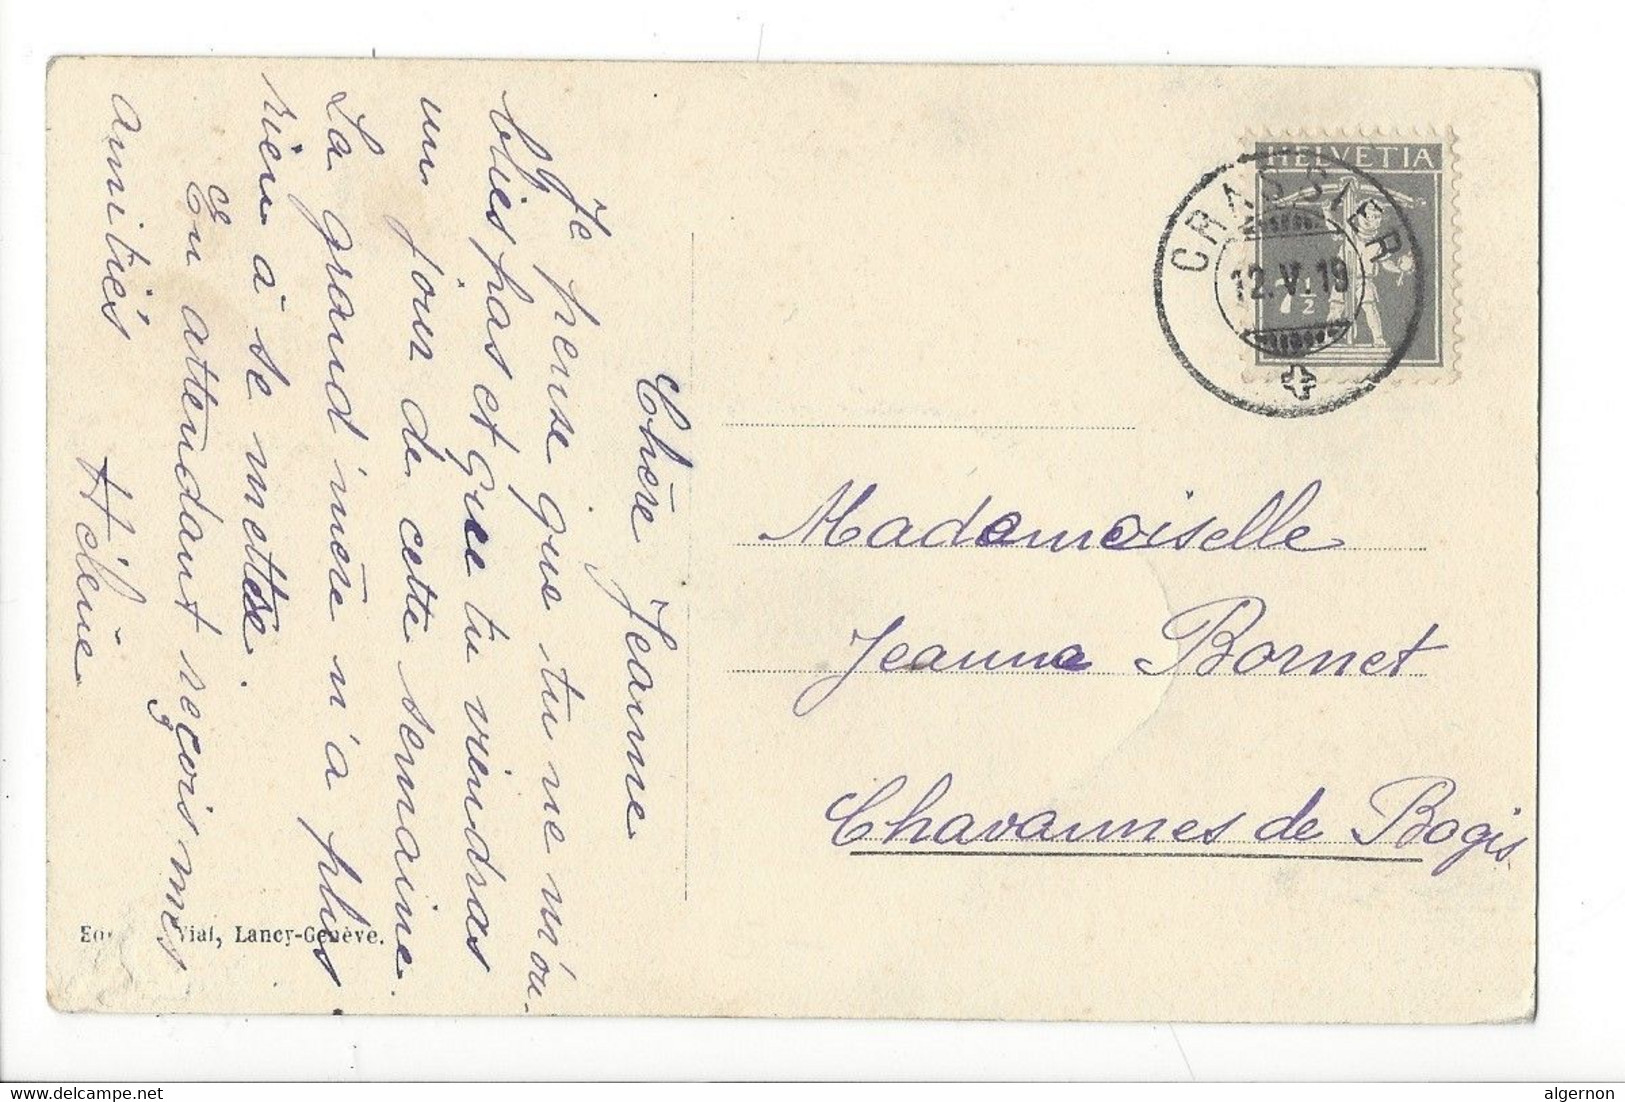 Chère Jeanne
Je pense que tu ne m'ou-
blies pas et que tu viendras
un jour de cette semaine.
La grand'mère n'a plus
rien à se mettre.
En attendant reçois mes
amitiés
Hélène
Vial, Lancy-Genève.
HELVETIA
7½
CRASSIER
12.V.19
Mademoiselle
Jeanne Bornet
Chavannes de Bogis
delcampe.net
algernon